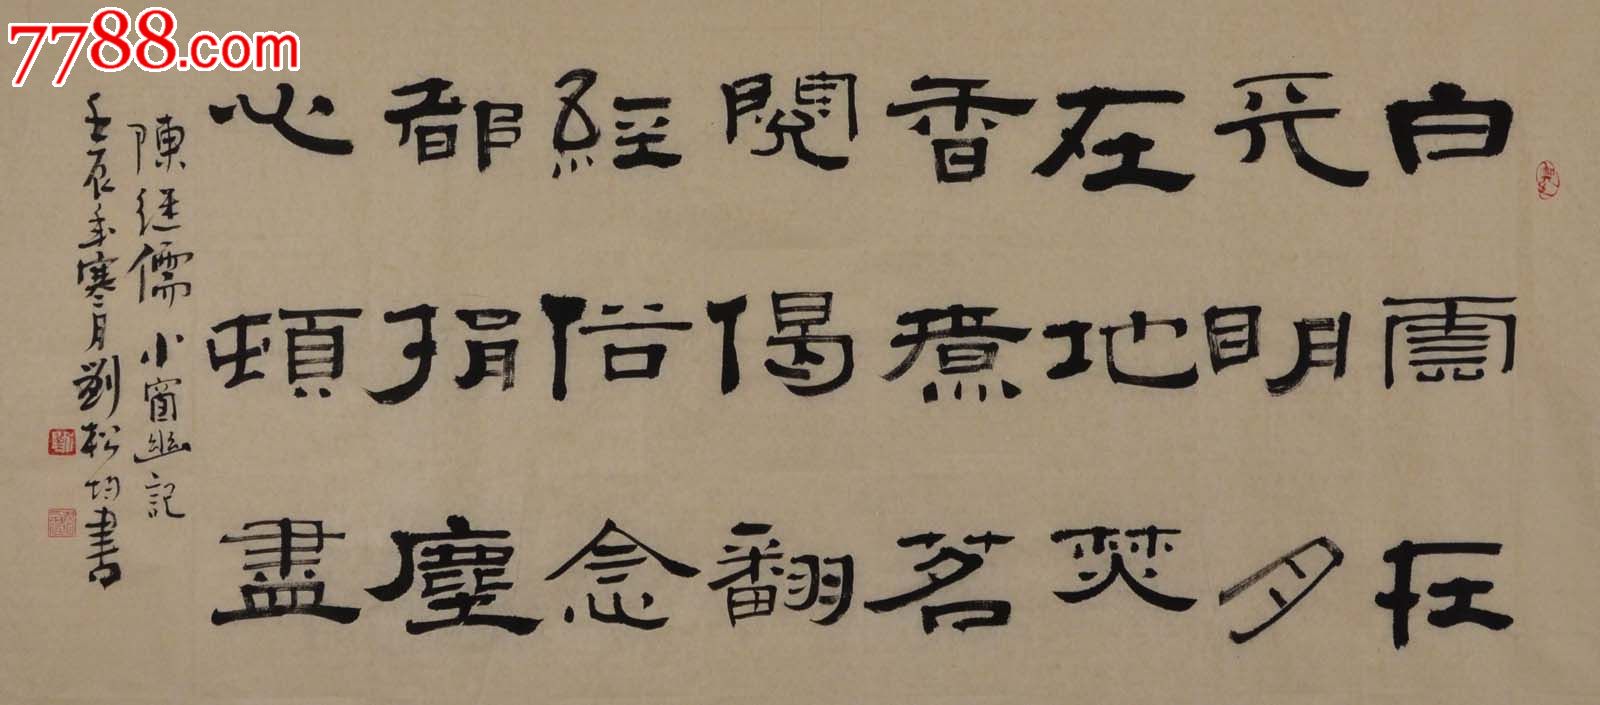 白雲在
天明月
在地焚
香煮茗
閱偈翻
經俗念
都捐塵
心頓盡
陳继儒小窗幽記
壬辰年寒月劉松均書
7788.com